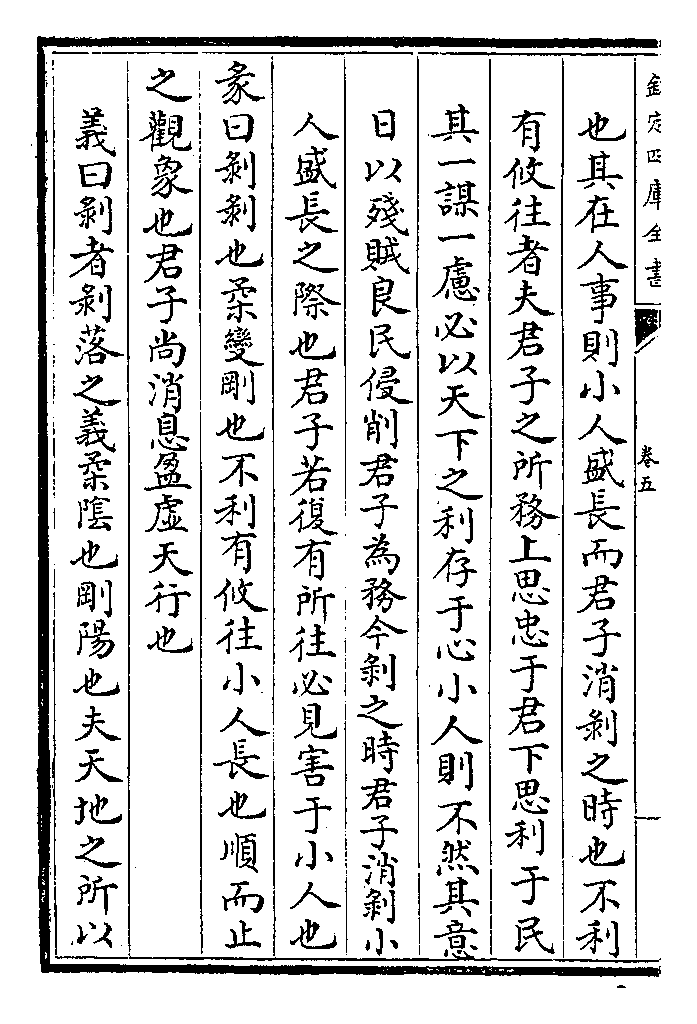 欽定四庫全書
卷五
也其在人事則小人盛長而君子消剝之時也不利
有攸往者夫君子之所務上思忠于君下思利于民
其一謀一慮必以天下之利存于心小人則不然其意
日以殘賊良民侵削君子為務今剝之時君子消剝小
人盛長之際也君子若復有所往必見害于小人也
彖曰剝剝也柔變剛也不利有攸往小人長也順而止
之觀象也君子尚消息盈虛天行也
義曰剝者剝落之義柔隂也剛陽也夫天地之所以